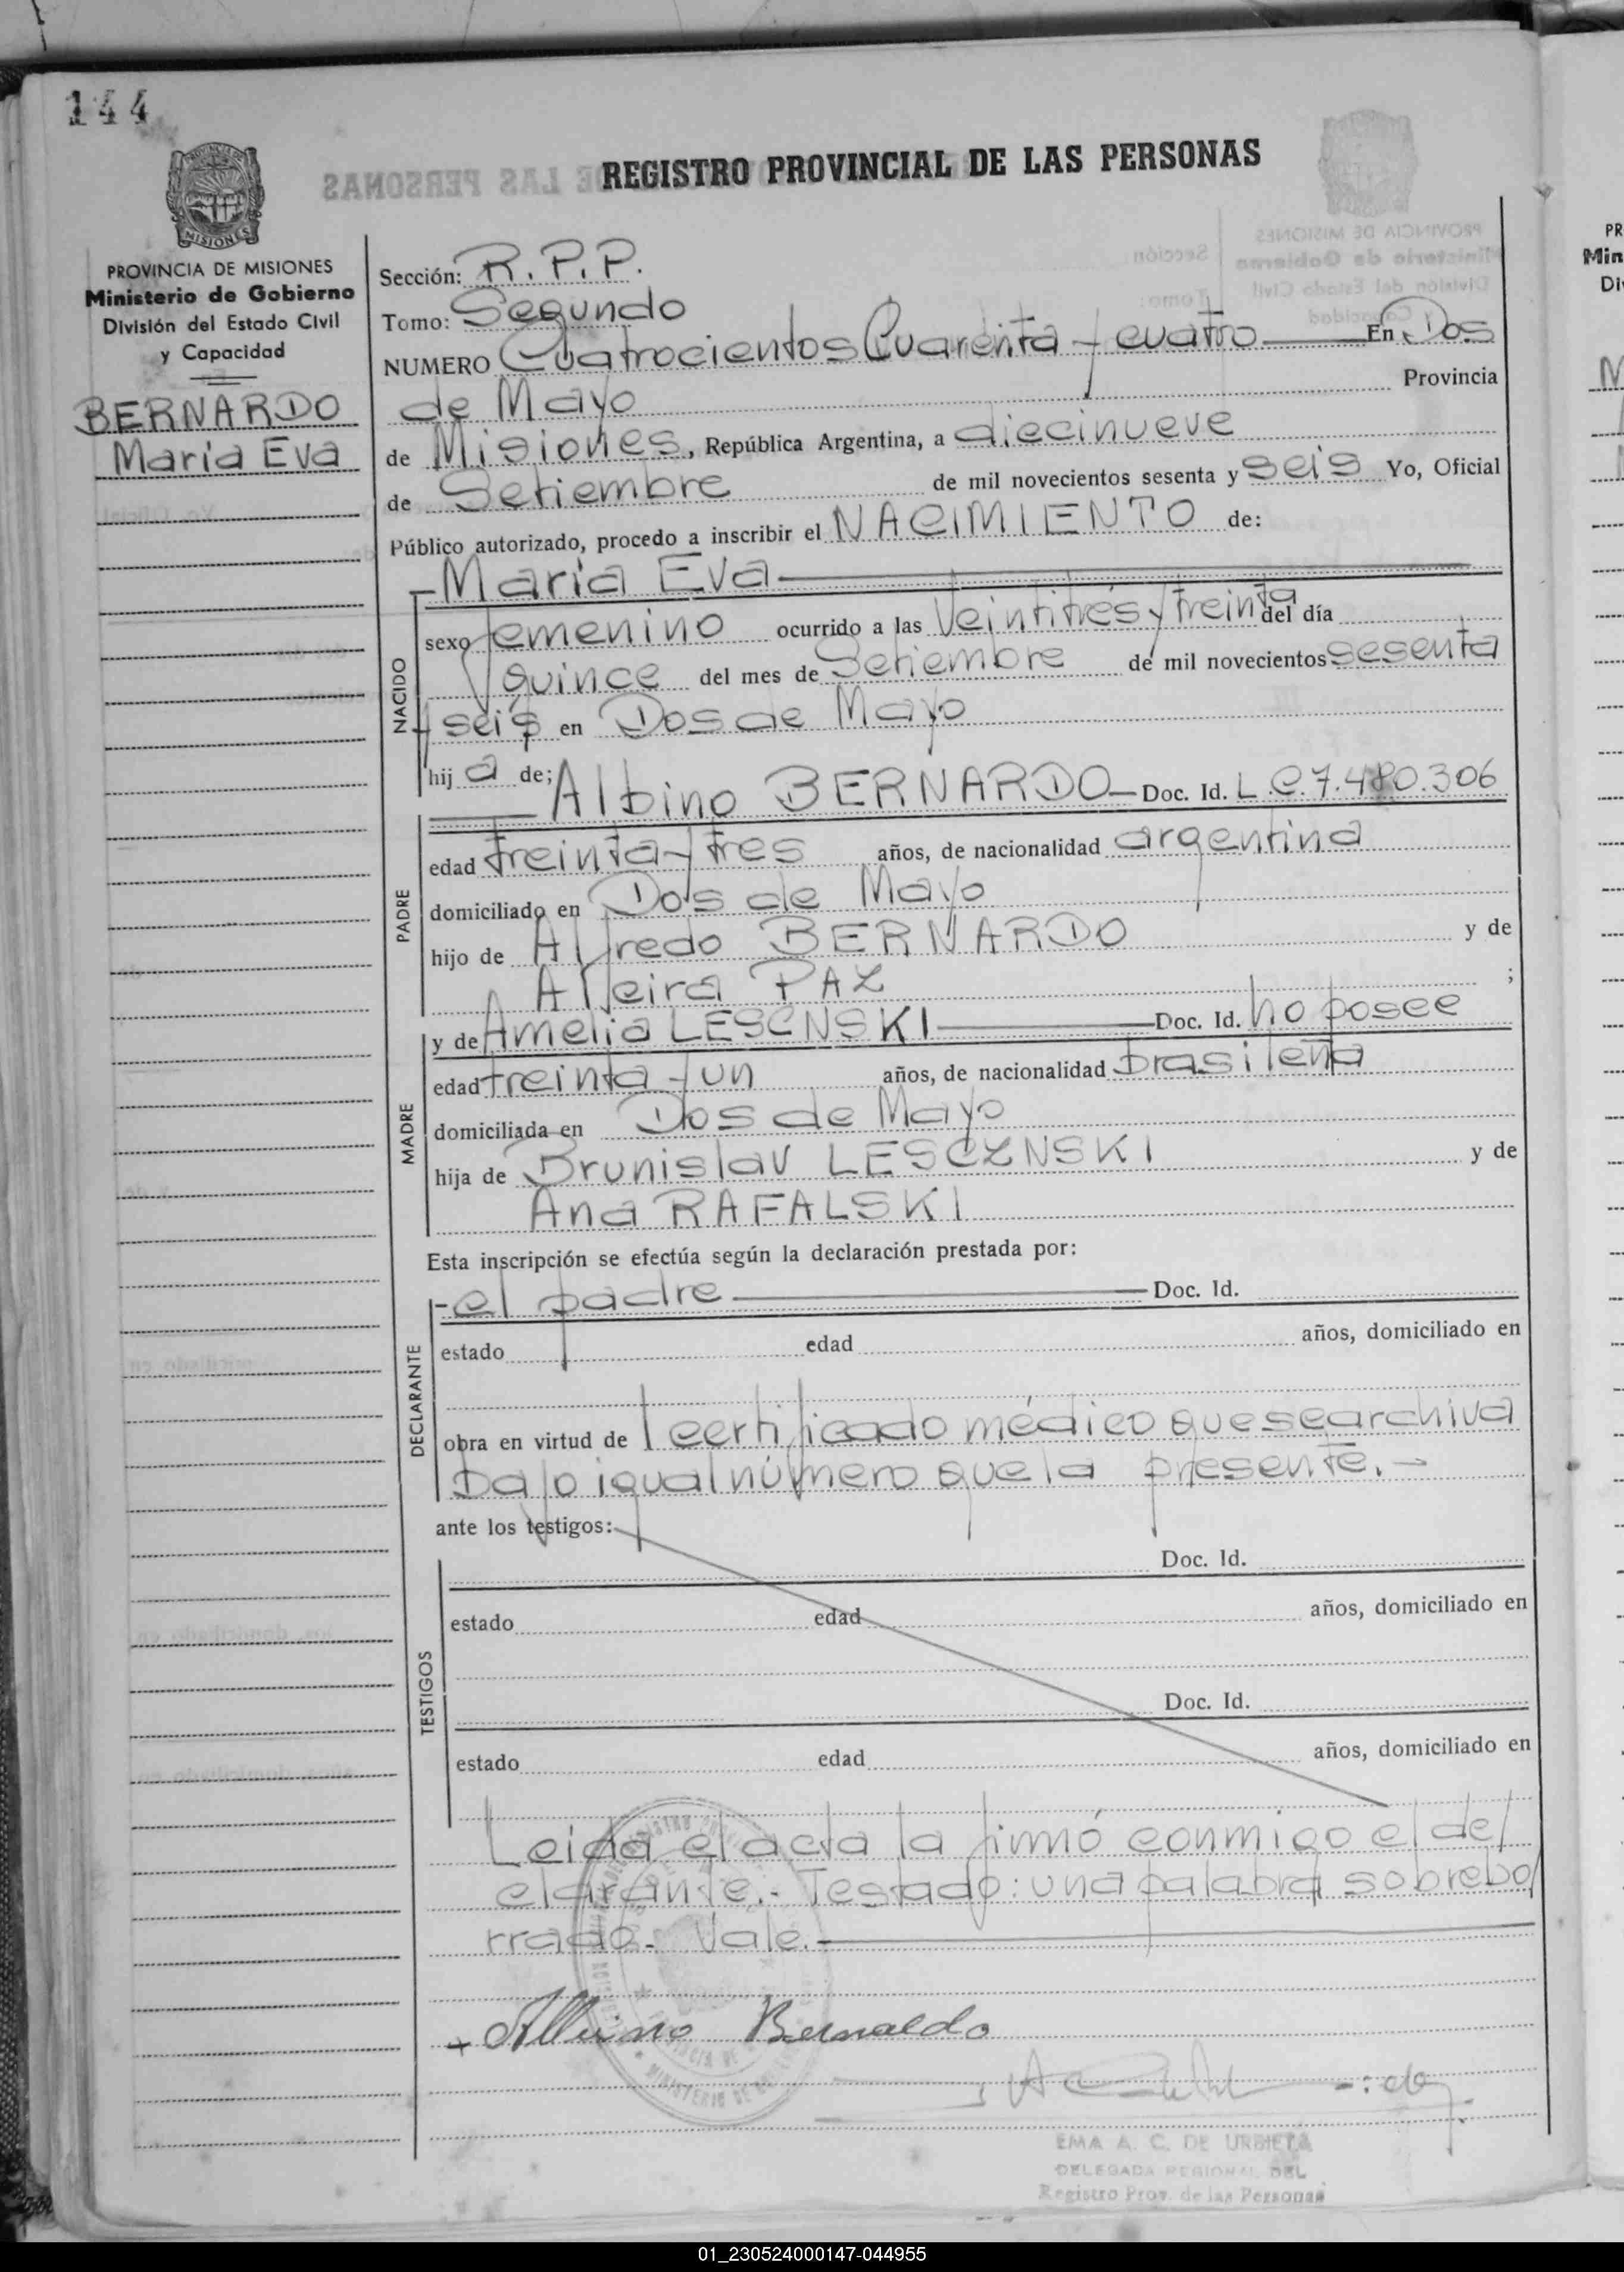 144
REGISTRO PROVINCIAL DE LAS PERSONAS
MISIONES
PROVINCIA DE MISIONES
Ministerio de Gobierno
División del Estado Civil
y Capacidad
BERNARDO
María Eva
Sección: R.P.P.
Tomo: Segundo
NUMERO Cuatrocientos Cuarenta y cuatro En Dos
de Mayo Provincia
de Misiones, República Argentina, a diecinueve
de Setiembre de mil novecientos sesenta y seis Yo, Oficial
Público autorizado, procedo a inscribir el NACIMIENTO de:
María Eva
NACIDO
sexo femenino ocurrido a las Veintitrés y treinta del día
quince del mes de Setiembre de mil novecientos sesenta
y seis en Dos de Mayo
hij a de; Albino BERNARDO Doc. Id. L.E.7.480.306
PADRE
edad treinta y tres años, de nacionalidad argentina
domiciliado en Dos de Mayo
hijo de Alfredo BERNARDO y de
PAZ ;
MADRE
y de Amelia LESCNSKI Doc. Id. no posee
edad treinta y un años, de nacionalidad brasileña
domiciliada en Dos de Mayo
hija de Brunislav LESCZNSKI y de
Ana RAFALSKI
Esta inscripción se efectúa según la declaración prestada por:
DECLARANTE
-el padre Doc. Id.
estado edad años, domiciliado en
obra en virtud de l certificado médico que se archiva
bajo igual número que la presente.-
ante los testigos:
TESTIGOS
Doc. Id.
estado edad años, domiciliado en
Doc. Id.
estado edad años, domiciliado en
Leida el acta la firmó conmigo el de/
clarante.- Testado: una palabra sobrebo/
rrado. Vale.
Bernaldo
EMA A. C. DE URBIETA
DELEGADA REGIONAL DEL
Registro Prov. de las Personas
01_230524000147-044955